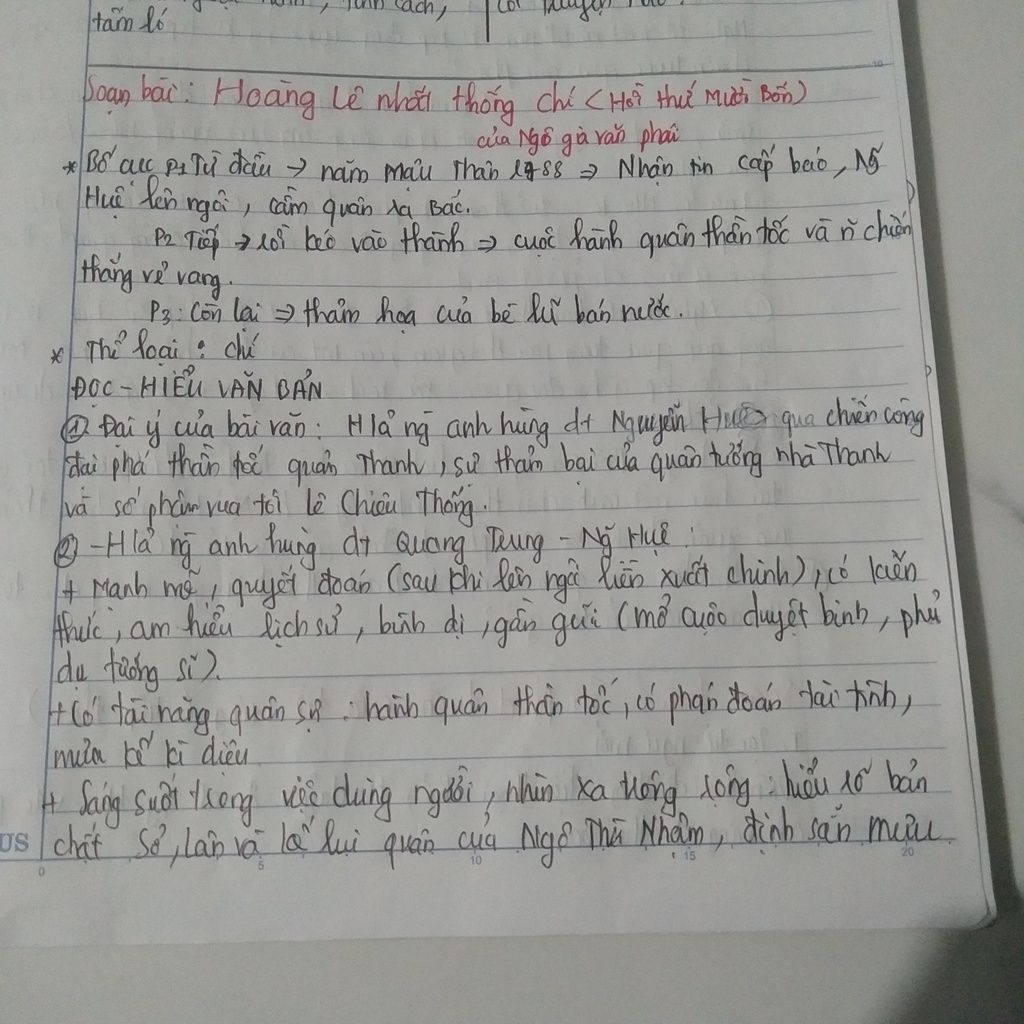 tính cách,
tâm lí
Soạn bài: Hoàng Lê nhất thống chí (Hồi thứ Mười Bốn)
của Ngô gia văn phái
* Bố cục P1 Từ đầu → năm mậu Thân 1788 ⇒ Nhận tin cấp báo, Ng̃
Huệ lên ngôi, cầm quân ra Bắc.
P2 Tiếp → rồi kéo vào thành ⇒ cuộc hành quân thần tốc và ñ chiến
thắng vẻ vang.
P3: Còn lại ⇒ thảm họa của bè lũ bán nước.
* Thể loại: chí
ĐỌC - HIỂU VĂN BẢN
① Đại ý của bài văn: H/ả ng̃ anh hùng dt Nguyễn Huệ qua chiến công
đại phá thần tốc quân Thanh, sự thảm bại của quân tướng nhà Thanh
và số phận vua tôi Lê Chiêu Thống.
② - H/ả ng̃ anh hùng dt Quang Trung - Ng̃ Huệ:
+ Mạnh mẽ, quyết đoán (sau khi lên ngôi liền xuất chinh), có kiến
thức, am hiểu lịch sử, bình dị, gần gũi (mở cuộc duyệt binh, phủ
dụ tướng sĩ).
+ Có tài năng quân sự: hành quân thần tốc, có phán đoán tài tình,
mưu kế kì diệu
+ Sáng suốt trong việc dùng người, nhìn xa trông rộng: hiểu rõ bản
chất Sở, Lân và lẽ lui quân của Ngô Thì Nhậm, định sẵn mưu
US
0 5 10 15 20